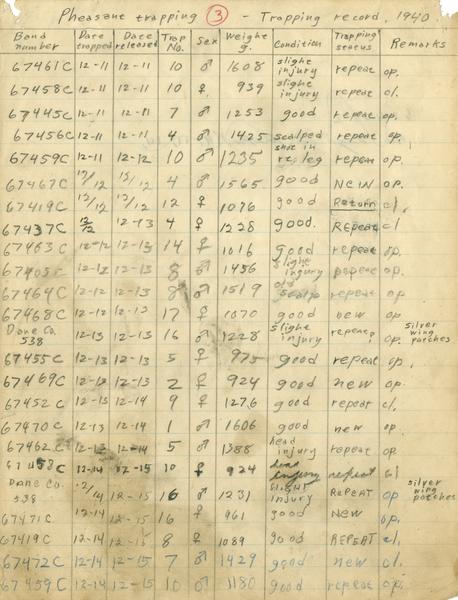 Pheasant trapping 3 - Trapping record, 1940.
Band number Date trapped Date released Trap No. Sex Weight g. Condition Trapping status Remarks
67461C 12-11 12-11 10 ♂ 1608 slight injury repeat op.
67458C 12-11 12-11 10 ♀ 939 slight injury repeat cl.
67445C 12-11 12-11 7 ♂ 1253 good repeat op.
67456C 12-11 12-11 4 ♂ 1425 scalped repeat op.
67459C 12-11 12-12 10 ♂ 1235 shot in r. leg repeat op.
67467C 12/12 12/12 4 ♂ 1565 good New op.
67419C 12/12 12/12 12 ♀ 1076 good Return cl.
67437C 12/12 12-13 4 ♀ 1228 good. REPEAT cl.
67463C 12-12 12-13 14 ♀ 1016 good repeat op.
12-12 12-13 8 ♂ 1456 slight injury repeat op.
67464C 12-12 12-13 8 ♂ 1519 old scalp repeat op
67468C 12-12 12-13 17 ♀ 1070 good new op
Dane Co. 538 12-13 12-13 16 ♂ 1228 slight injury repeat op. silver wing patches
67455C 12-13 12-13 5 ♀ 975 good repeat op.
67469C 12-13 12-13 2 ♀ 924 good new op.
67452C 12-13 12-14 9 ♀ 1276 good repeat cl.
67470C 12-13 12-14 1 ♂ 1606 good new op.
67462C 12-13 12-14 5 ♂ 1388 head injury repeat op
67458C 12-14 12-15 10 ♀ 924 head injury repeat cl
Dane Co. 538 12/14 12-15 16 ♂ 1231 slight injury REPEAT op silver wing patches
67471C 12-14 12-15 16 ♀ 961 good New op.
67419C 12-14 12-15 8 ♀ 1089 good REPEAT cl.
67472C 12-14 12-15 7 ♂ 1429 good new cl.
67459C 12-14 12-15 10 ♂ 1180 good repeat op.